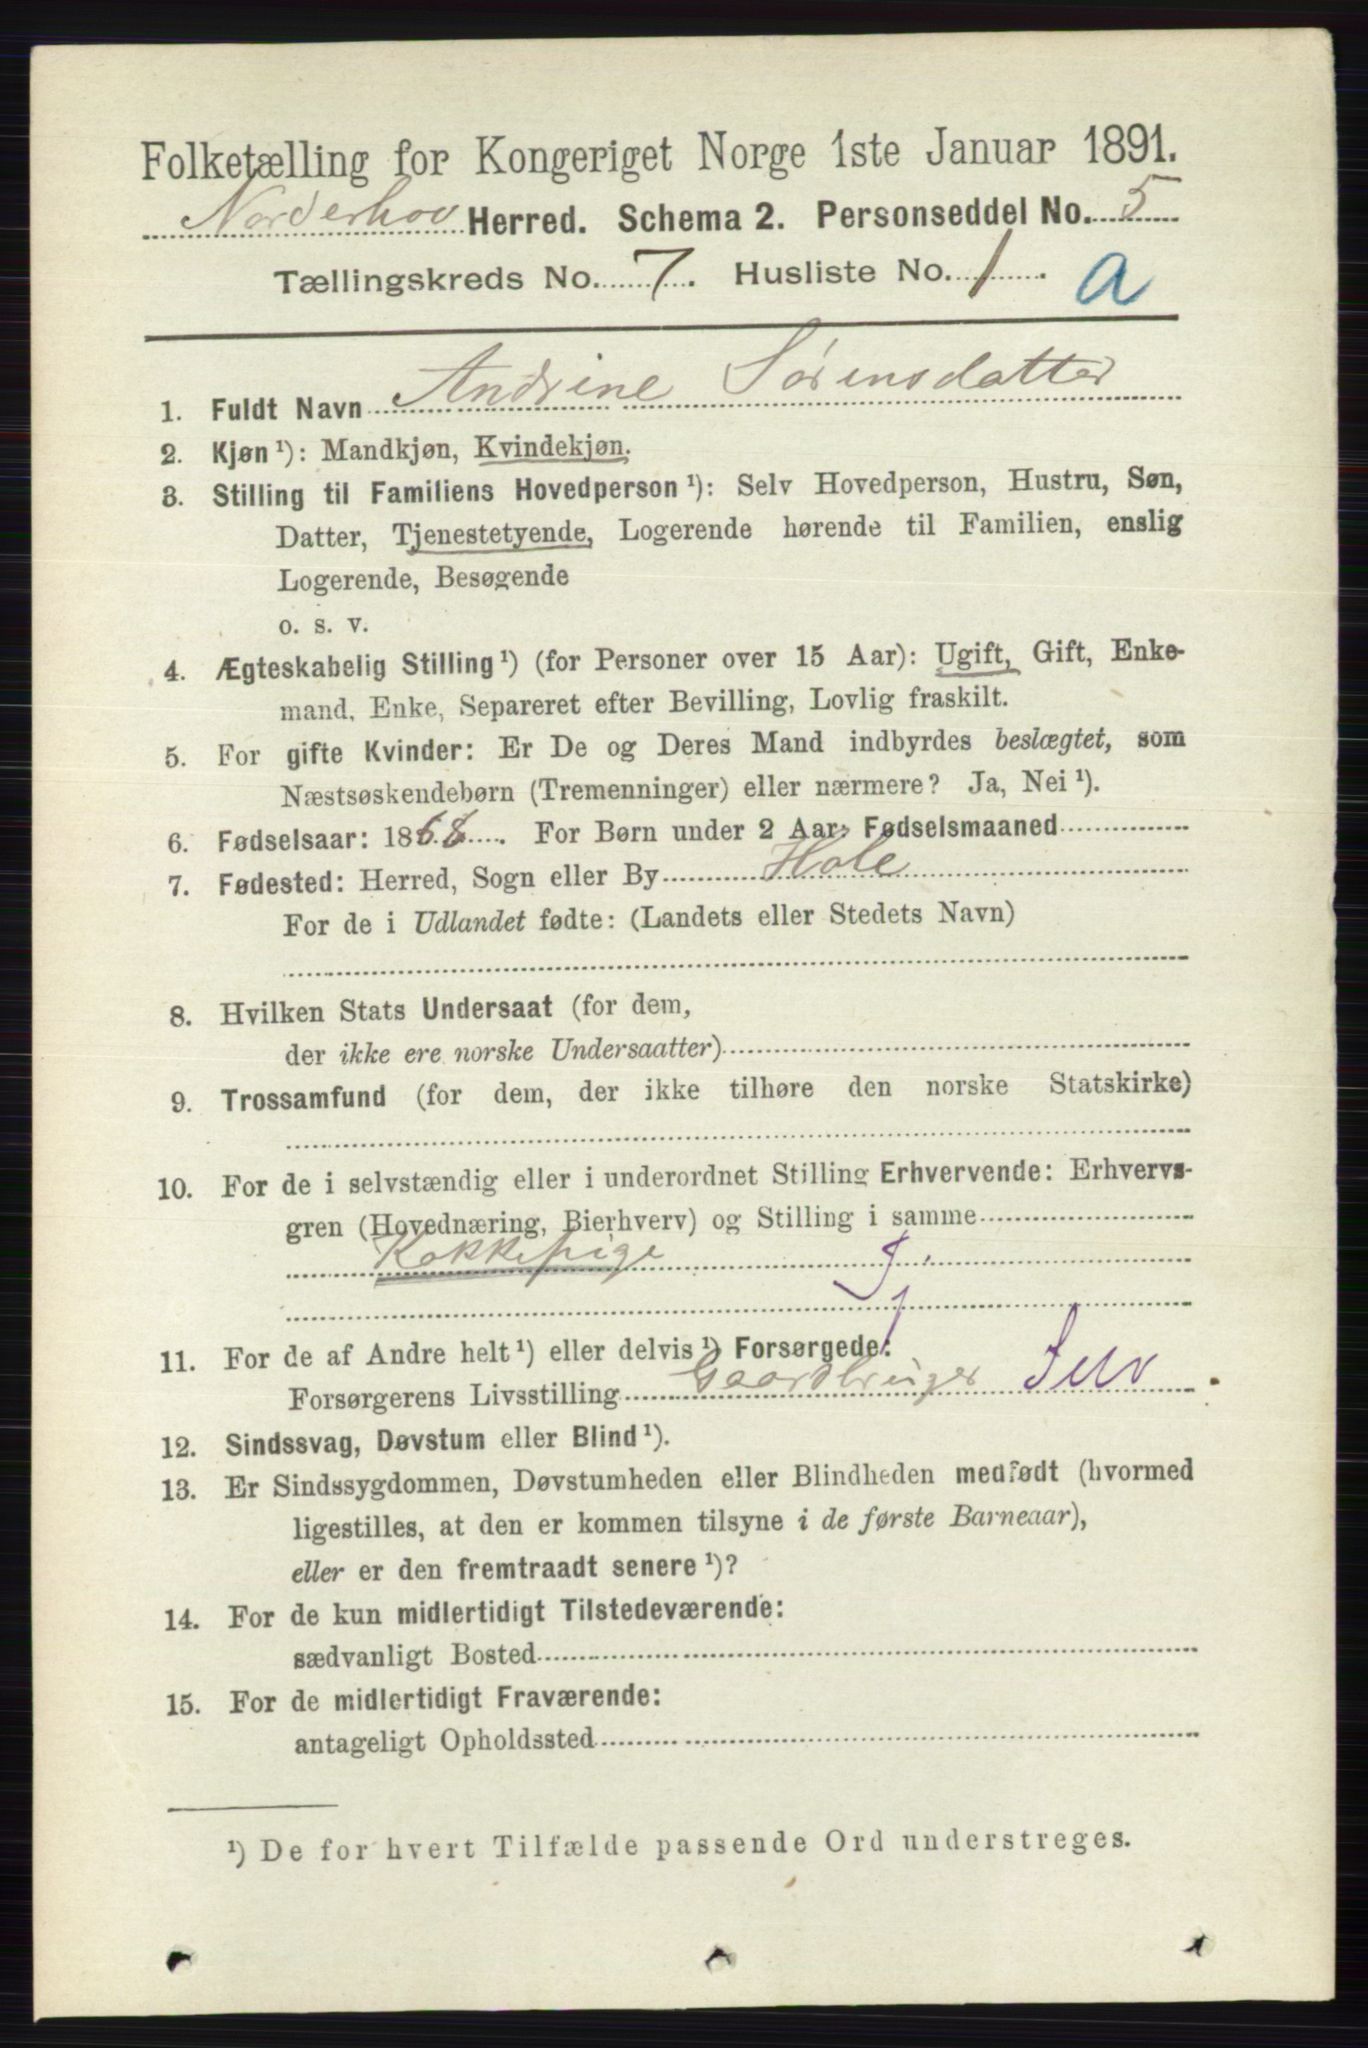 Folketælling for Kongeriget Norge 1ste Januar 1891.
Norderhov Herred. Schema 2. Personseddel No. 5
Tællingskreds No. 7. Husliste No. 1. a
1. Fuldt Navn Andrine Sørensdatter
2. Kjøn ¹): Mandkjøn, Kvindekjøn.
3. Stilling til Familiens Hovedperson ¹): Selv Hovedperson, Hustru, Søn,
Datter, Tjenestetyende, Logerende hørende til Familien, enslig
Logerende, Besøgende
o. s. v.
4. Ægteskabelig Stilling ¹) (for Personer over 15 Aar): Ugift, Gift, Enke-
mand, Enke, Separeret efter Bevilling, Lovlig fraskilt.
5. For gifte Kvinder: Er De og Deres Mand indbyrdes beslægtet, som
Næstsøskendebørn (Tremenninger) eller nærmere? Ja, Nei ¹).
6. Fødselsaar: 1868. For Børn under 2 Aar: Fødselsmaaned
7. Fødested: Herred, Sogn eller By Hole
For de i Udlandet fødte: (Landets eller Stedets Navn)
8. Hvilken Stats Undersaat (for dem,
der ikke ere norske Undersaatter)
9. Trossamfund (for dem, der ikke tilhøre den norske Statskirke)
10. For de i selvstændig eller i underordnet Stilling Erhvervende: Erhvervs-
gren (Hovednæring, Bierhverv) og Stilling i samme
Kokkepige
11. For de af Andre helt ¹) eller delvis ¹) Forsørgede:
Forsørgerens Livsstilling Gaardbruger
12. Sindssvag, Døvstum eller Blind ¹).
13. Er Sindssygdommen, Døvstumheden eller Blindheden medfødt (hvormed
ligestilles, at den er kommen tilsyne i de første Barneaar),
eller er den fremtraadt senere ¹)?
14. For de kun midlertidigt Tilstedeværende:
sædvanligt Bosted
15. For de midlertidigt Fraværende:
antageligt Opholdssted
¹) De for hvert Tilfælde passende Ord understreges.